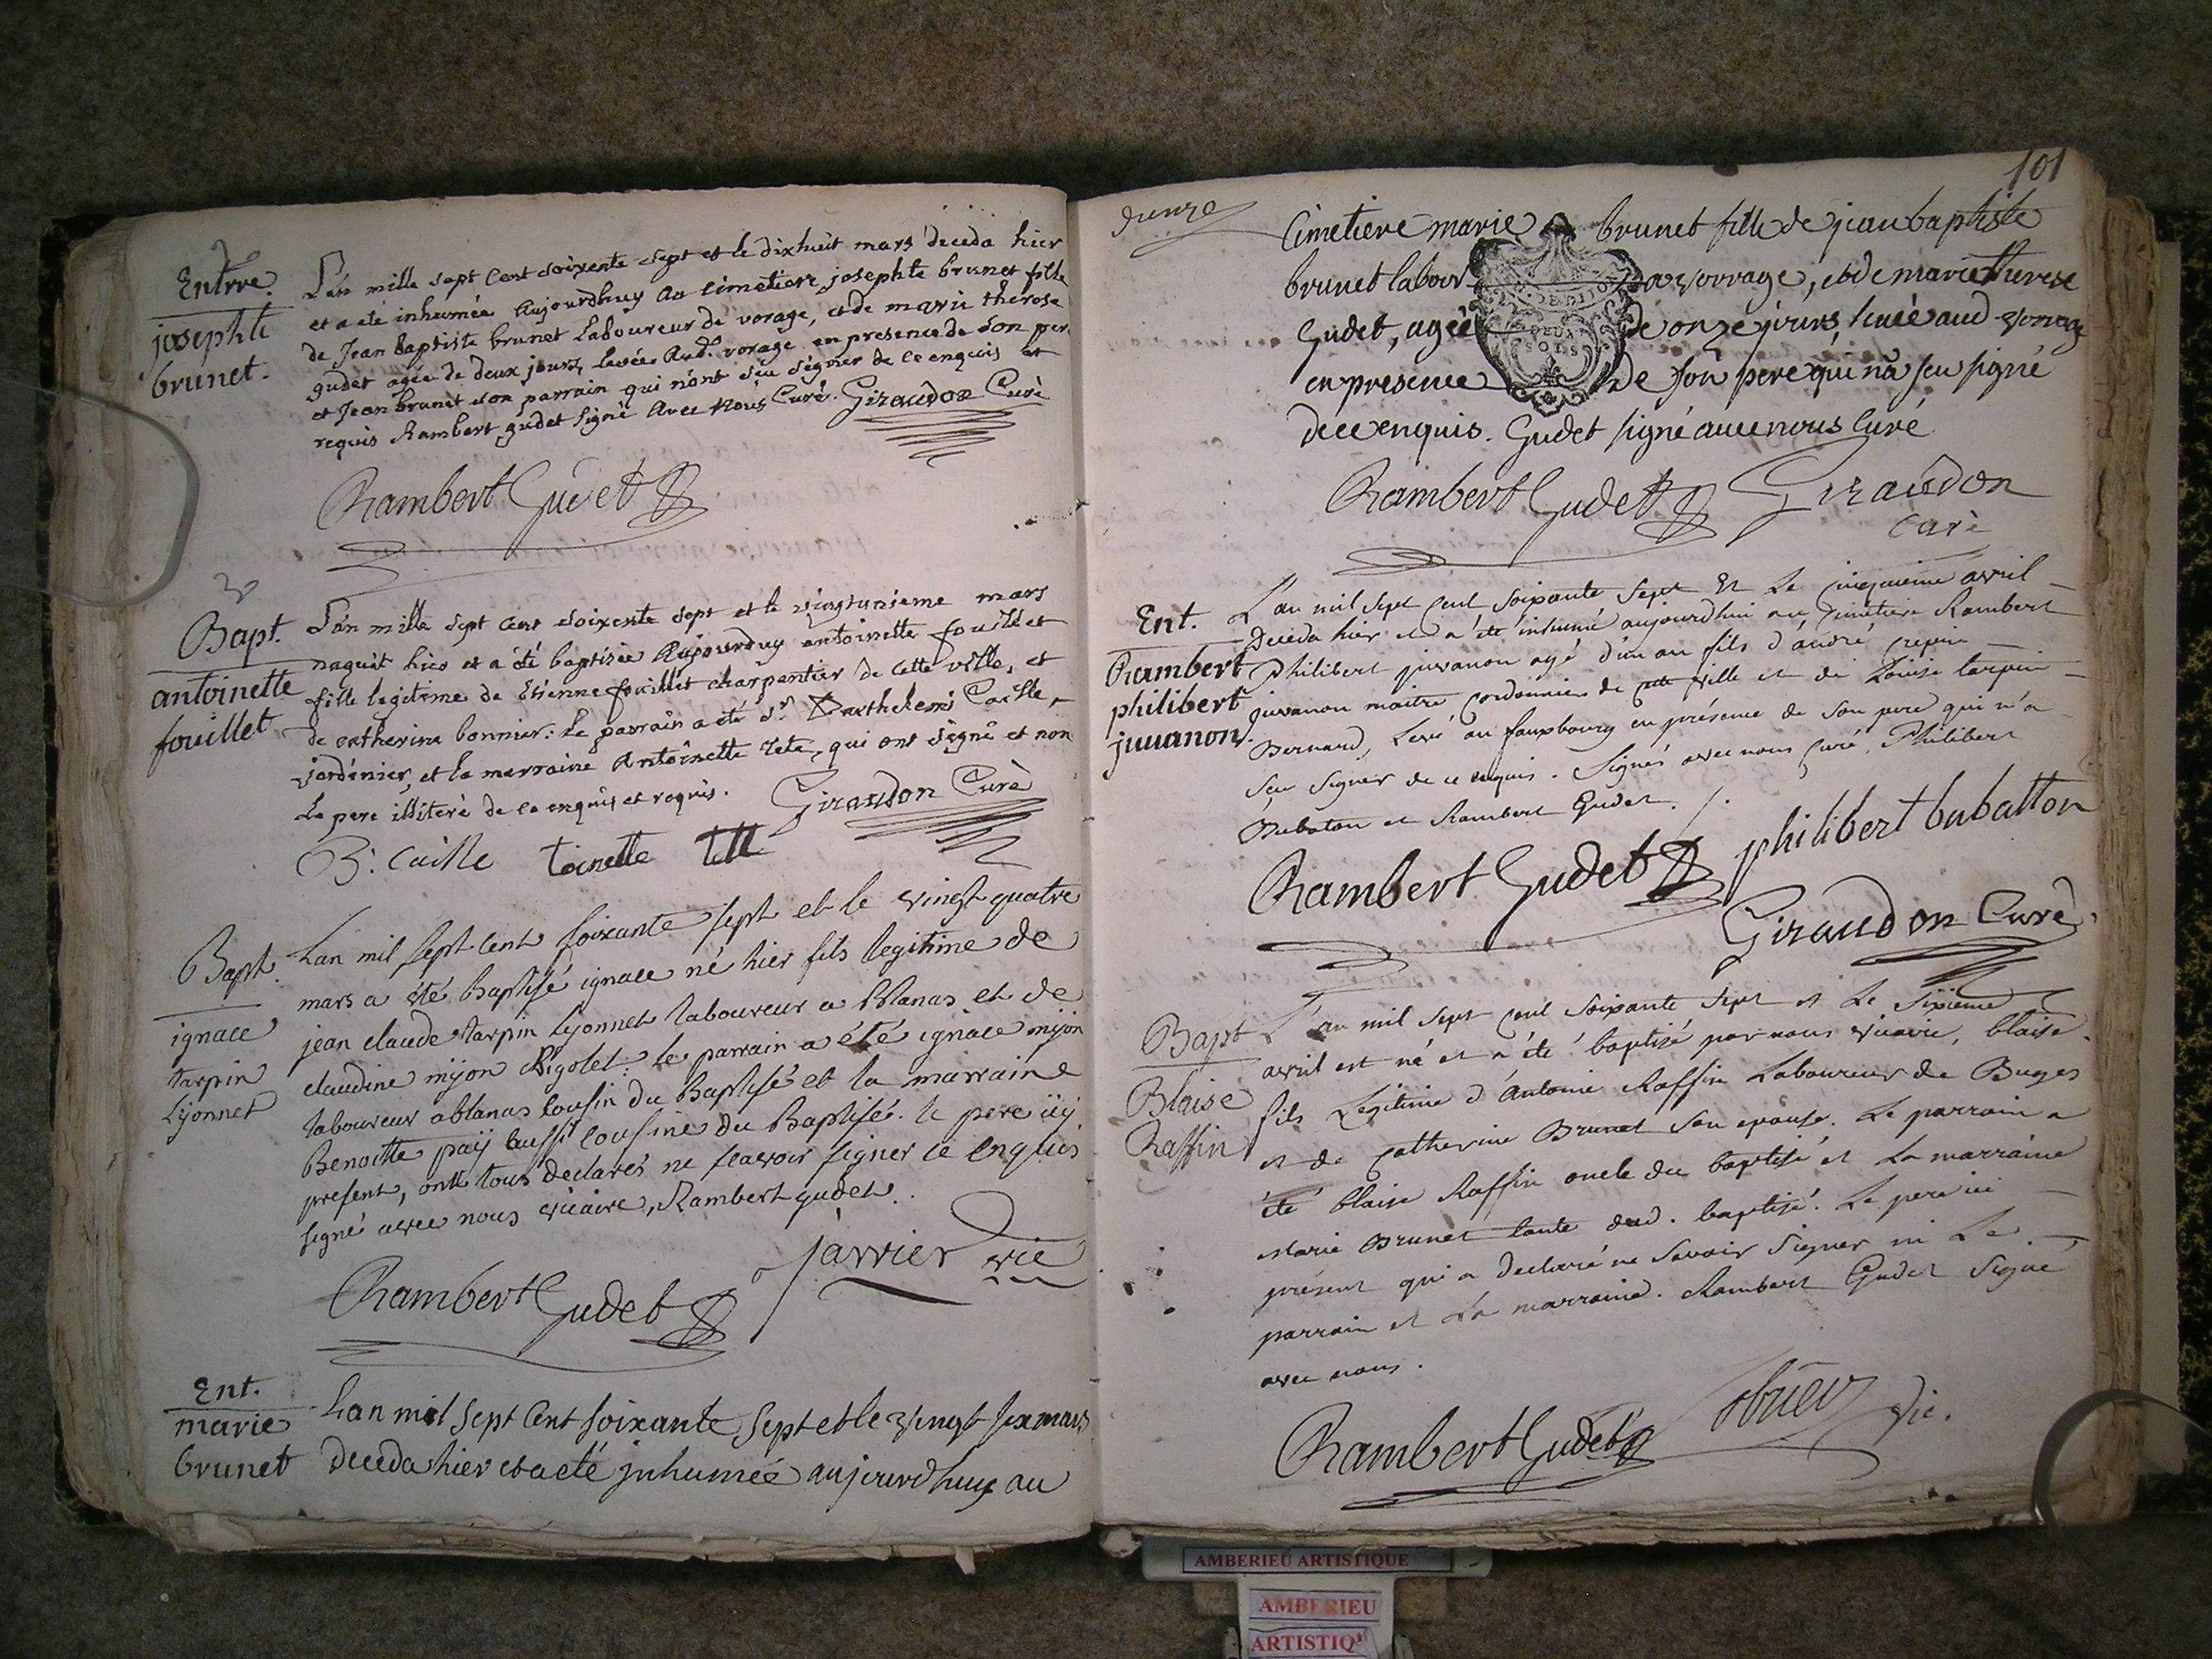 Entrre.
josephte
brunet.
L'an mille sept Cent soixente sept et le dixhuit mars deceda hier
et a eté inhumée Aujourdhuy Au cimetiere josephte brunet fille
de Jean baptiste brunet Laboureur de vorage, et de marie therese
gudet agée de deux jours, levée Aud. vorage en presence de son pere
et Jean brunet son parrain qui n'ont sçu signer de ce enquis et
requis Rambert gudet signé avec nous Curé. Giraudon Curè
Rambert Gudet
Bapt.
antoinette
fouillet
L'an mille sept Cent soixente sept et le vingtunieme mars
naquit hier et a été baptisée Aujourdhuy antoinette fouillet
fille legitime de Etienne fouillet charpentier de Cette ville, et
de catherine bonnier: le parrain a eté Sr. Barthelemi Caille,
jardinier, et la marraine Antoinette tete, qui ont signé et non
le pere illiteré de ce enquis et requis. Giraudon Curè
B. Caille toinette tett
Bapt.
ignace
tarpin
Lyonnet
Lan mil sept cent soixante sept et le vingt quatre
mars a été Baptisé ignace né hier fils legitime de
jean claude tarpin lyonnet laboureur a blanas et de
claudine mijon Rigolet: le parrain a été ignace mijon
laboureur ablanas cousin du Baptisé et la marraine
Benoitte paÿ aussi cousine du Baptisé. le pere icy
present, ont tous declarés ne scavoir signer ce enquis
signé avec nous vicaire, Rambert gudet.
Rambert Gudet javvier vic
Ent.
marie
brunet
Lan mil sept Cent soixante sept et le vingt six mars
deceda hier et a eté inhumée aujourdhuy au
101
Cimetiere marie brunet fille de jean baptiste
brunet labour vorrage, et de marie therese
Gudet, agée de onze jours, levée aud vorrage
en presence de son pere qui n'a seu signé
de ce enquis. Gudet signé avec nous Curé
DEUX
SOLS
Rambert Gudet Giraudon
Curè
Ent.
Rambert
philibert
juuanon.
L'an mil sept cent soixante sept et le cinquieme avril
deceda hier et a été inhumé aujourdhui au cimetiere Rambert
Philibert juvanon agé d'un an fils d'andré crepin
juvanon maitre cordonnier de cette ville et de Louise tarpin
Bernard, levé au fauxbourg en présence de son pere qui n'a
seu signer de ce enquis. Signés avec nous curé, Philibert
Bubaton et Rambert Gudet.
Rambert Gudet philibert bubatton
Giraudon Curè
Bapt
Blaise
Raffin
L'an mil sept cent soixante sept et le sixieme
avril est né et a été baptisé par nous vicaire, blaise
fils Legitime d'Antoine Raffin Laboureur de Buges
et de Catherine Brunet son epouse. Le parrain a
été blaise Raffin oncle du baptisé et La marraine
Marie Brunet tante dud. baptisé. Le pere ici
présent qui a declaré ne savoir signer ni Le
parrain et La marraine. Rambert Gudet signé
avec nous.
Rambert Gudet vic.
AMBERIEU ARTISTIQUE
AMBERIEU
ARTISTIQ